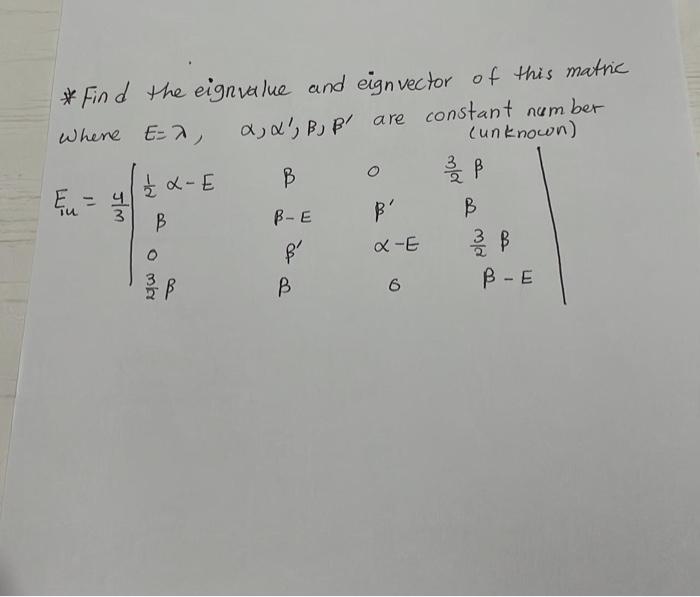 * Find the eignvalue and eignvector of this matric
where E=λ, α, α', β, β' are constant number
(unknown)
E_iu = 4/3 | 1/2 α-E β 0 3/2 β |
β β-E β' β
0 β' α-E 3/2 β
3/2 β β 6 β-E